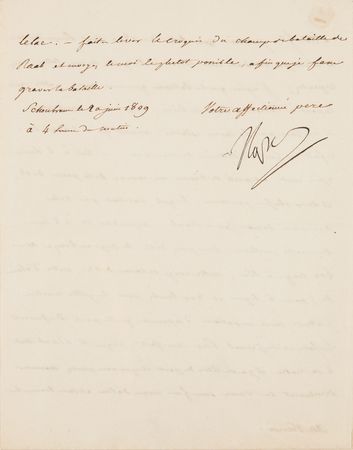 le lac. — faites lever le croquis du champ de bataille de
Raab et envoyez le moi le plutot possible, afin que je fasse
graver la bataille.
Schonbrun le 20 juin 1809
Votre affectionné pere
à 4 heures du matin
Nap